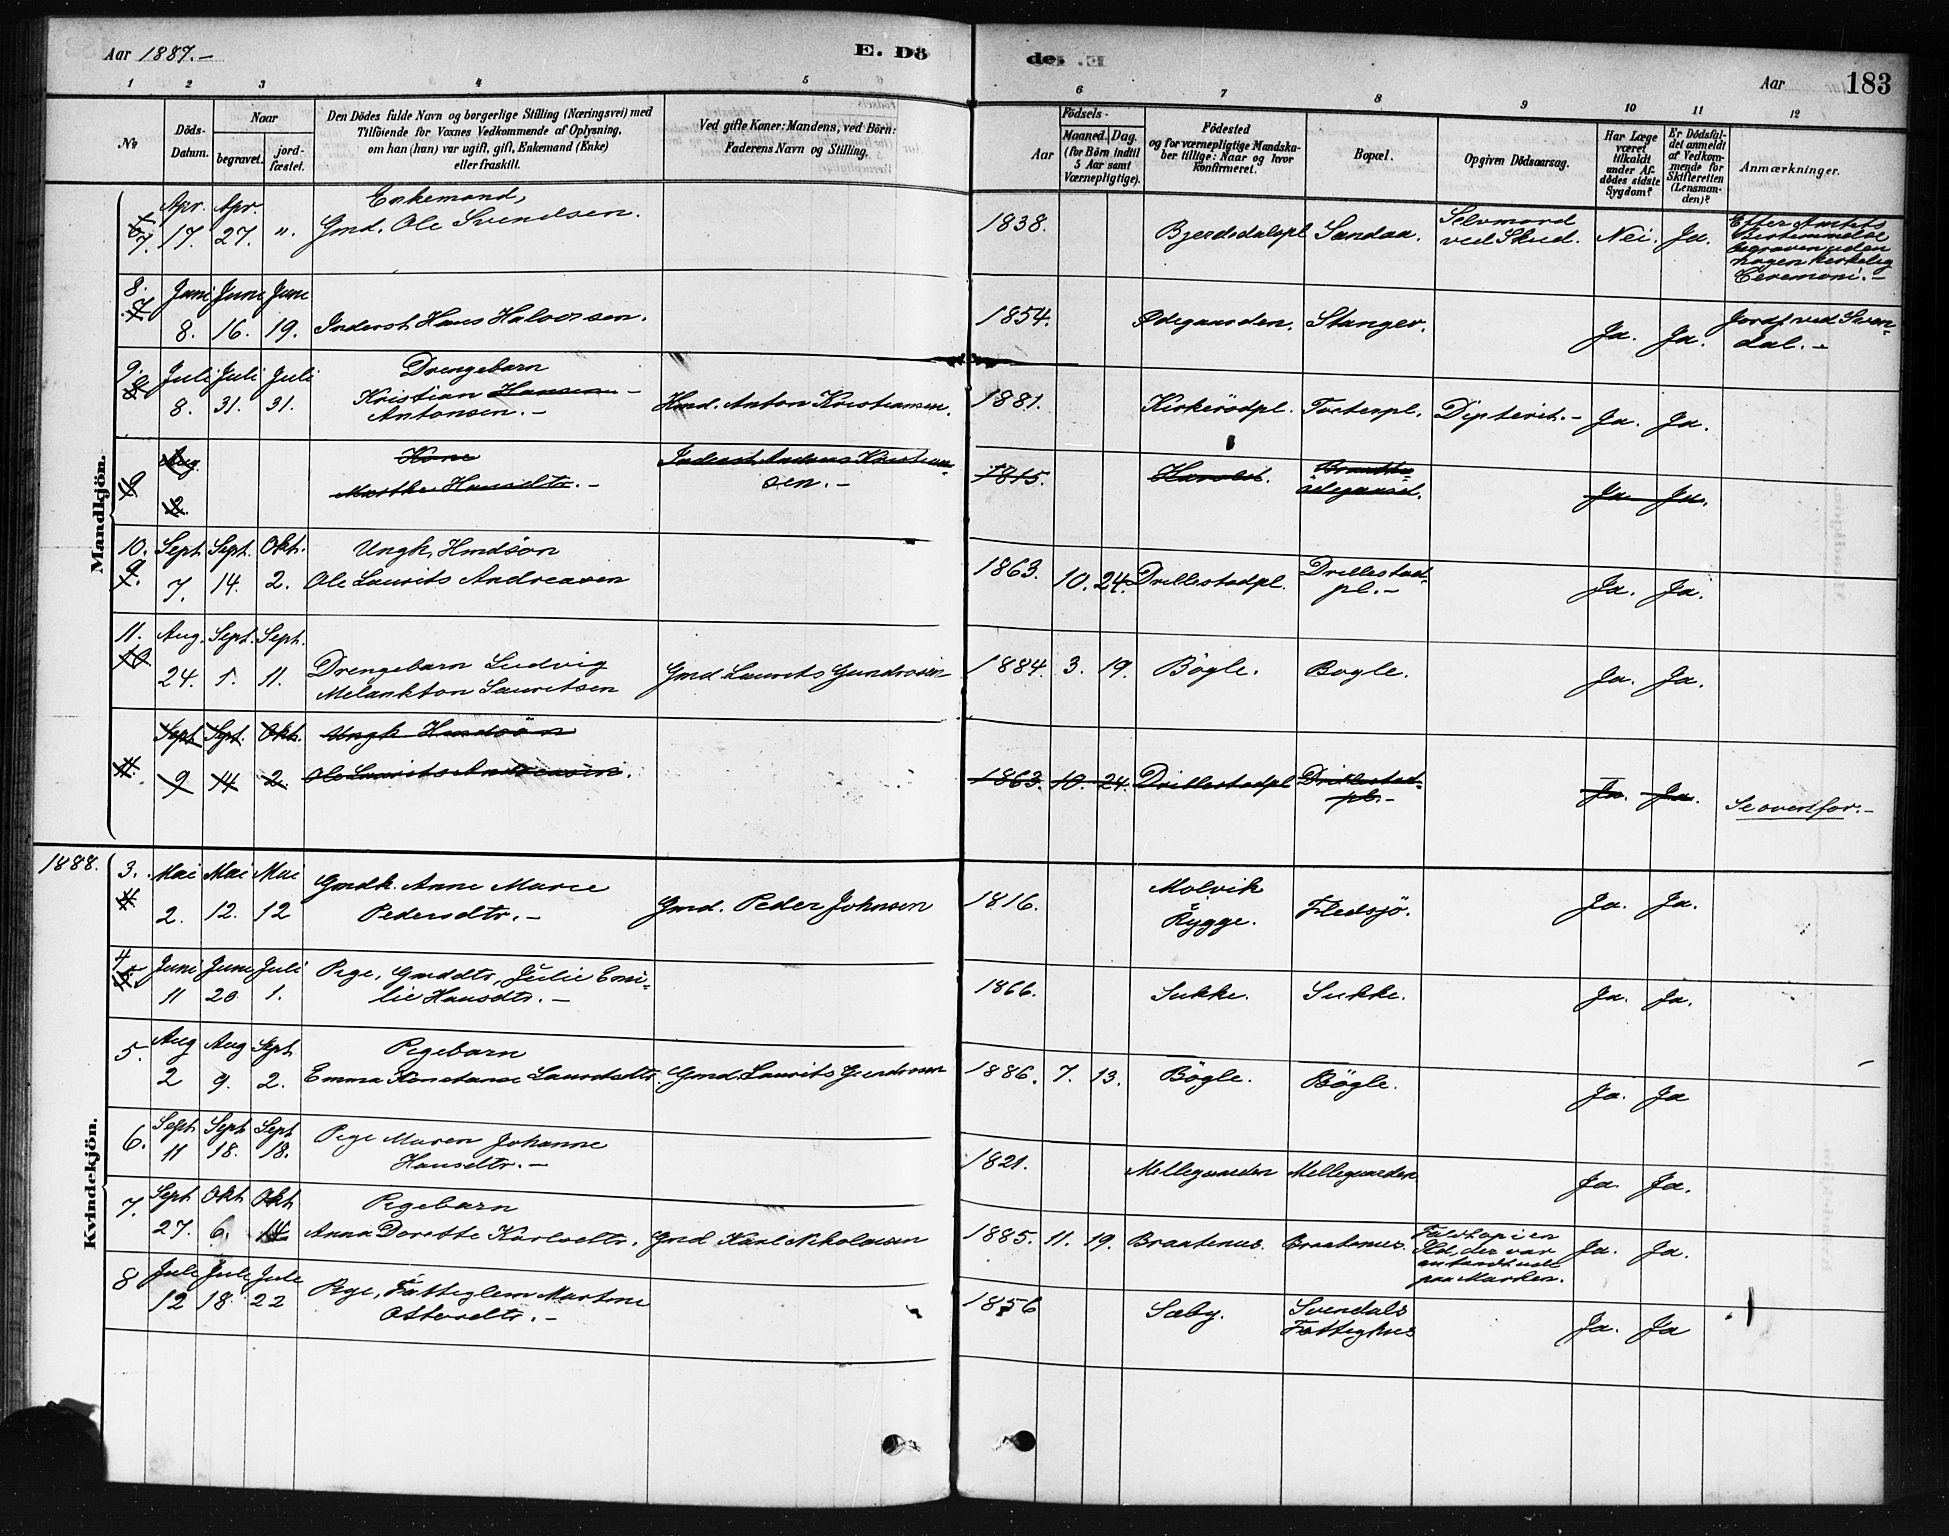 Aar 1887.-
E. Dö
de. E.
Aar
183
1 2 3 4 5 6 7 8 9 10 11 12
No
Döds-
Datum.
Naar
begravet.
jord-
fæstet.
Den Dödes fulde Navn og borgerlige Stilling (Næringsvei) med
Tilföiende for Voxnes Vedkommende af Oplysning,
om han (hun) var ugift, gift, Enkemand (Enke)
eller fraskilt.
Ved gifte Koner: Mandens, ved Börn:
Faderens Navn og Stilling.
Födsels-
Aar
Maaned.
Dag.
(for Börn indtil
5 Aar samt
Værnepligtige).
Födested
og for værnepligtige Mandska-
ber tillige: Naar og hvor
konfirmeret.
Bopæl.
Opgiven Dödsaarsag.
Har Læge
været
tilkaldt
under Af-
dödes sidste
Sygdom?
Er Dödsfal-
det anmeldt
af Vedkom-
mende for
Skifteretten
(Lensman-
den)?
Anmærkninger.
Mandkjön.
7. Apr. 17. Apr. 27. „
Enkemand,
Gmd. Ole Svendsen.
1838. Sandaa.
Selvmord
ved Skud.
Nei. Ja.
Efter Amtets
Bestemmelse
begraven uden
nogen kirkelig
Ceremoni.-
8. 7 Juni 8. Juni 16. Juni 19.
Inderst Hans Halvorsen.
1854. Ødegaarden. Stanger. Ja. Ja.
Jordf. ved Sven-
dal.-
9. 8 Juli 8. Juli 31. Juli 31.
Drengebarn
Kristian Hansen -
Antonsen.-
Hmd. Anton Kristiansen.
1881. Kirkerödpl. Torterpl. Dipterit.- Ja. Ja.
9 Aug.
Kone
Marthe Hansdtr.-
Inderst Anders Kristian-
sen.-
1815.
ödegaard.
Ja. Ja.
10. 9. Sept. 7. Sept. 14. Okt. 2.
Ungk. Hmdsön
Ole Laurits Andreasen
1863. 10. 24. Drillestadpl. Drillestad-
pl.-
Ja. Ja.
11. 10 Aug. 24. Sept. 1. Sept. 11.
Drengebarn Ludvig
Melankton Lauritsen
Gmd. Laurits Gundrosen
1884. 3. 19. Bögle. Bogle. Ja. Ja.
11. Sept. 9 Sept. 14 Okt. 2.
Ungk. Hmdsön
Ole Laurits Andreasen.
1863. 10. 24. Drillestadpl Drillestad-
pl.-
Ja. Ja. Se ovenfor.-
1888.
Kvindekjön.
3. 4 Mai 2. Mai 12. Mai 12
Gmdk. Anne Marie
Pedersdtr.-
Gmd. Peder Johnsen
1816. Molvik
Rygge.
Fledsjö. Ja. Ja.
4 5. Juni 11 Juni 20 Juli 1.
Pige, Gmddtr, Julie Emi-
lie Hansdtr.-
1866. Sukke. Sukke. Ja. Ja.
5. Aug 2 Aug 9. Sept. 2.
Pigebarn
Emma Konstanse Lauritsdtr.
Gmd. Laurits Gundrosen
1886. 7. 13. Bögle. Bögle. Ja. Ja
6. Sept 11 Sept 18. Sept 18.
Pige Maren Johanne
Hansdtr.-
1821. Mellegaarden Mellegaarden Ja. Ja.
7. Sept 27. Okt 6. Okt 14
Pigebarn
Anna Dorette Karlsdtr.
Gmd Karl Nikolaisen
1885. 11. 19. Braatenus. Braatenus.
Faldt op i en
Ild, der var
antændt ude
paa Marken.
Ja. Ja.
8 Juli 12 Juli 18. Juli 22
Pige, Fattiglem Martine
Ottersdtr.-
1856 Sæby. Svendals
Fattighus
Ja. Ja